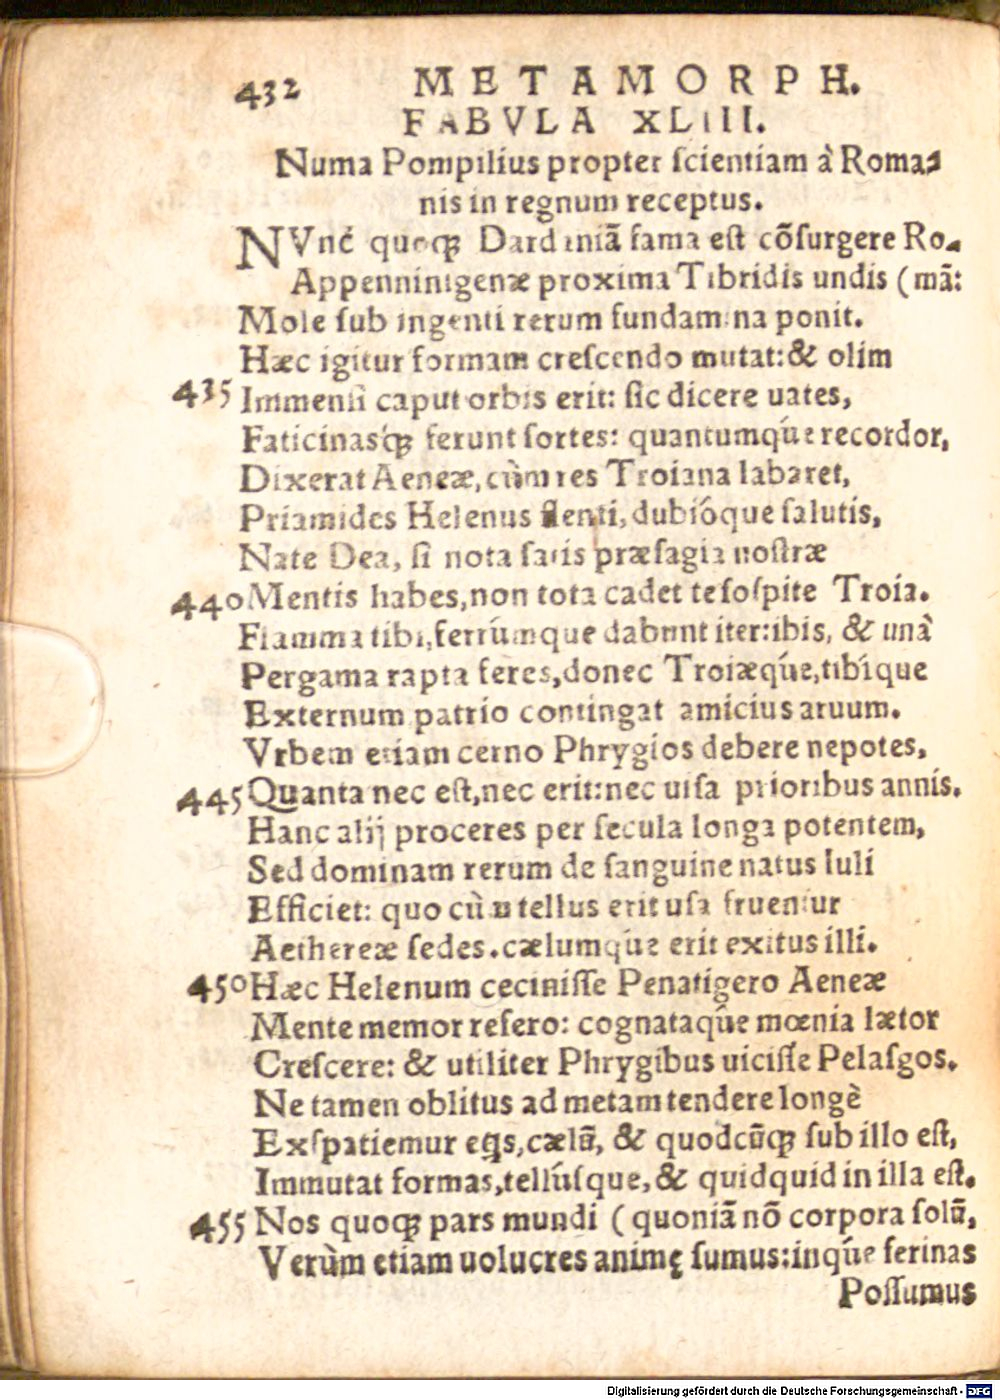 432 METAMORPH.
FABVLA XLIIII.
Numa Pompilius propter ſcientiam à Roma⸗
nis in regnum receptus.
NVnc quoqꝫ Dardaniã fama eſt cõſurgere Ro⸗
Appenninigenæ proxima Tibridis undis (mã:
Mole ſub ingenti rerum fundamina ponit.
Hæc igitur formam creſcendo mutat:& olim
435 Immenſi caput orbis erit: ſic dicere uates,
Faticinasq́ꝫ ferunt ſortes: quantumq́ue recordor,
Dixerat Aeneæ, cùm res Troiana labaret,
Priamides Helenus flenti, dubióque ſalutis,
Nate Dea, ſi nota ſatis præſagia noſtræ
440 Mentis habes,non tota cadet te ſoſpite Troia.
Flamma tibi,ferrúmque dabunt iter:ibis, & unà
Pergama rapta feres,donec Troiæq́ue,tibíque
Externum patrio contingat amicius aruum.
Vrbem etiam cerno Phrygios debere nepotes,
445 Quanta nec eſt,nec erit:nec uiſa prioribus annis.
Hanc alij proceres per ſecula longa potentem,
Sed dominam rerum de ſanguine natus Iuli
Efficiet: quo cùm tellus erit uſa fruentur
Aethereæ ſedes.cælumq́ue erit exitus illi.
450 Hæc Helenum ceciniſſe Penatigero Aeneæ
Mente memor refero: cognataq́ue mœnia lætor
Creſcere: & utiliter Phrygibus uiciſſe Pelaſgos.
Ne tamen oblitus ad metam tendere longè
Exſpatiemur eq̃s,cælũ, & quodcũqꝫ ſub illo eſt,
Immutat formas,tellúſque,& quidquid in illa eſt.
455 Nos quoqꝫ pars mundi (quoniã nõ corpora ſolũ,
Verùm etiam uolucres animę ſumus:inq́ue ferinas
Poſſumus
Digitalisierung gefördert durch die Deutsche Forschungsgemeinschaft - DFG